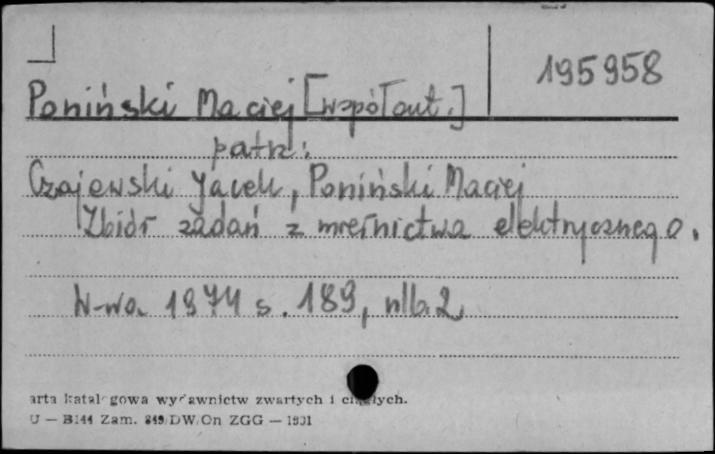 195958
Poniński Maciej [współaut.]
patrz:
Czajewski Jacek, Poniński Maciej
Zbiór zadań z miernictwa elektrycznego.
W-wa 1974 s. 189, nlb. 2
arta katal gowa wydawnictw zwartych i ciągłych.
U — B144 Zam. 849/DW/On ZGG — 1931